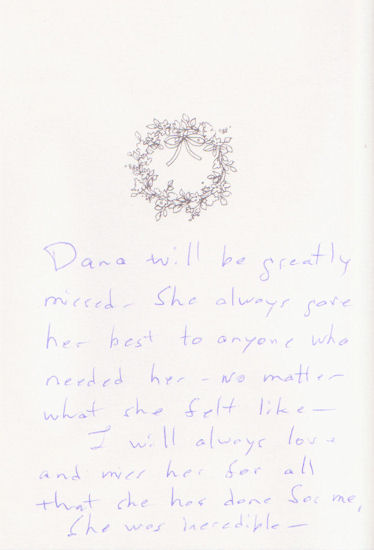 Dana will be greatly
missed - She always gave
her best to anyone who
needed her - no matter
what she felt like -
I will always love
and miss her for all
that she has done for me,
She was incredible -